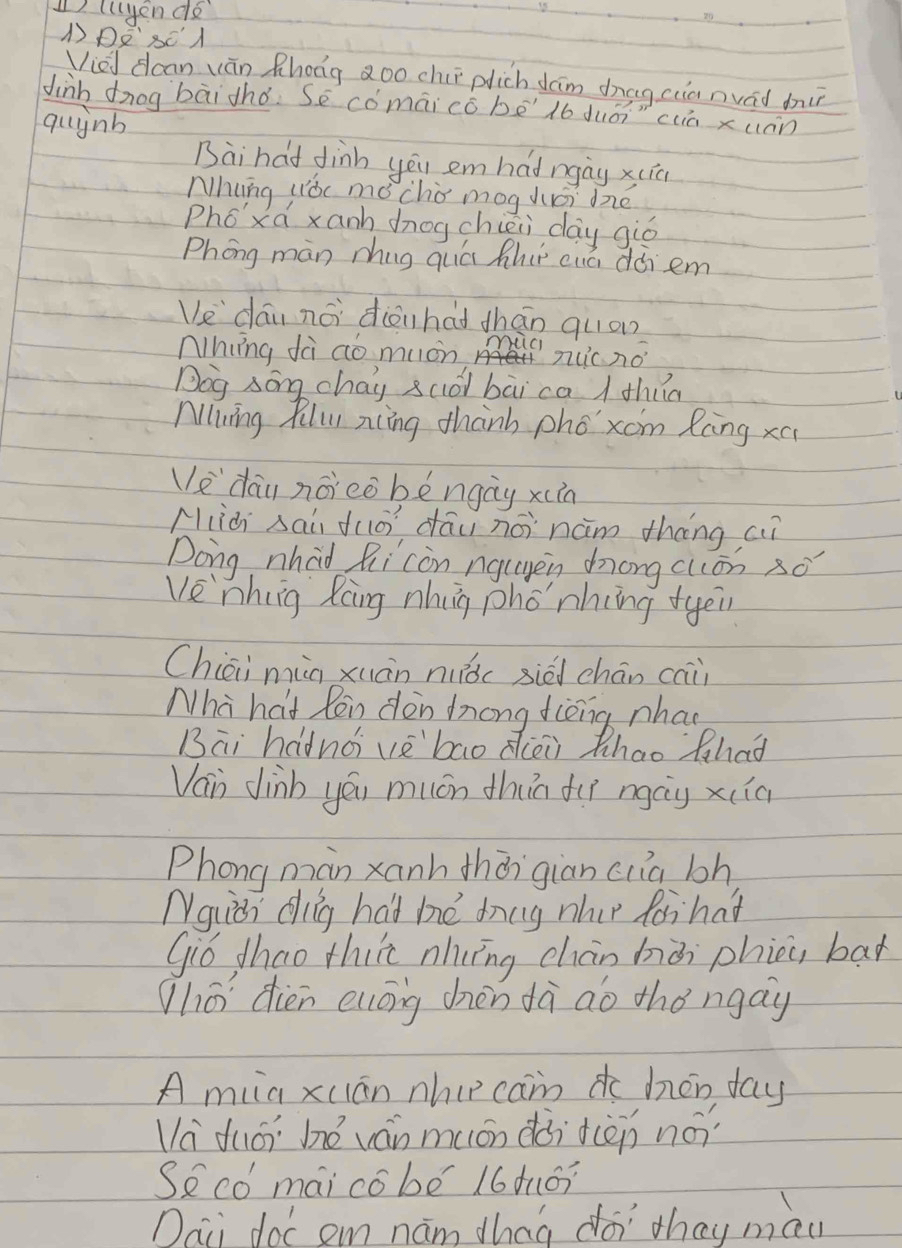 II) luyện đề
1) Đề số 1
Viết đoạn văn khoảg 200 chữ ptích tâm trạg của nvật trữ
tình trog bài thơ: Sẽ có mãi cô bé 16 tuổi" của xuân
quỳnh
Bài hát tình yêu em hát ngày xưa
Những ước mơ chờ mog tuổi trẻ
Phố xá xanh trog chiều dày gió
Phông màn nhug quá khứ của đời em
Về đâu rồi điệu hát thân quen
Những tà áo muôn mùa rực rỡ
Dòg sông chảy suốt bài ca 1 thủa
Những khu rừng thành phố xóm làng xa
Về đâu rồi cô bé ngày xưa
Mười sáu tuổi đâu rồi năm tháng cũ
Dòng nhật kí còn nguyên trong cuốn sổ
Về nhữg làng nhữg phố những tyêu
Chiều mùa xuân nước siết chân cầu
Nhà hát lên đèn trong tiếng nhạc
Bài hát nói về bao điều khao khát
Vẫn tình yêu muôn thủa tự ngày xưa
Phong màn xanh thời gian của bh
Người đứg hát trẻ trug như lời hát
Gió thao thức những chân trời phiêu bạt
Thổi điên cuồng trên tà áo thơ ngây
A mùa xuân như cầm đc trên tay
Và tuổi trẻ vẫn muôn đời tiếp nối
Sẽ có mãi cô bé 16 tuổi
Dẫu tóc em năm thág đổi thay màu